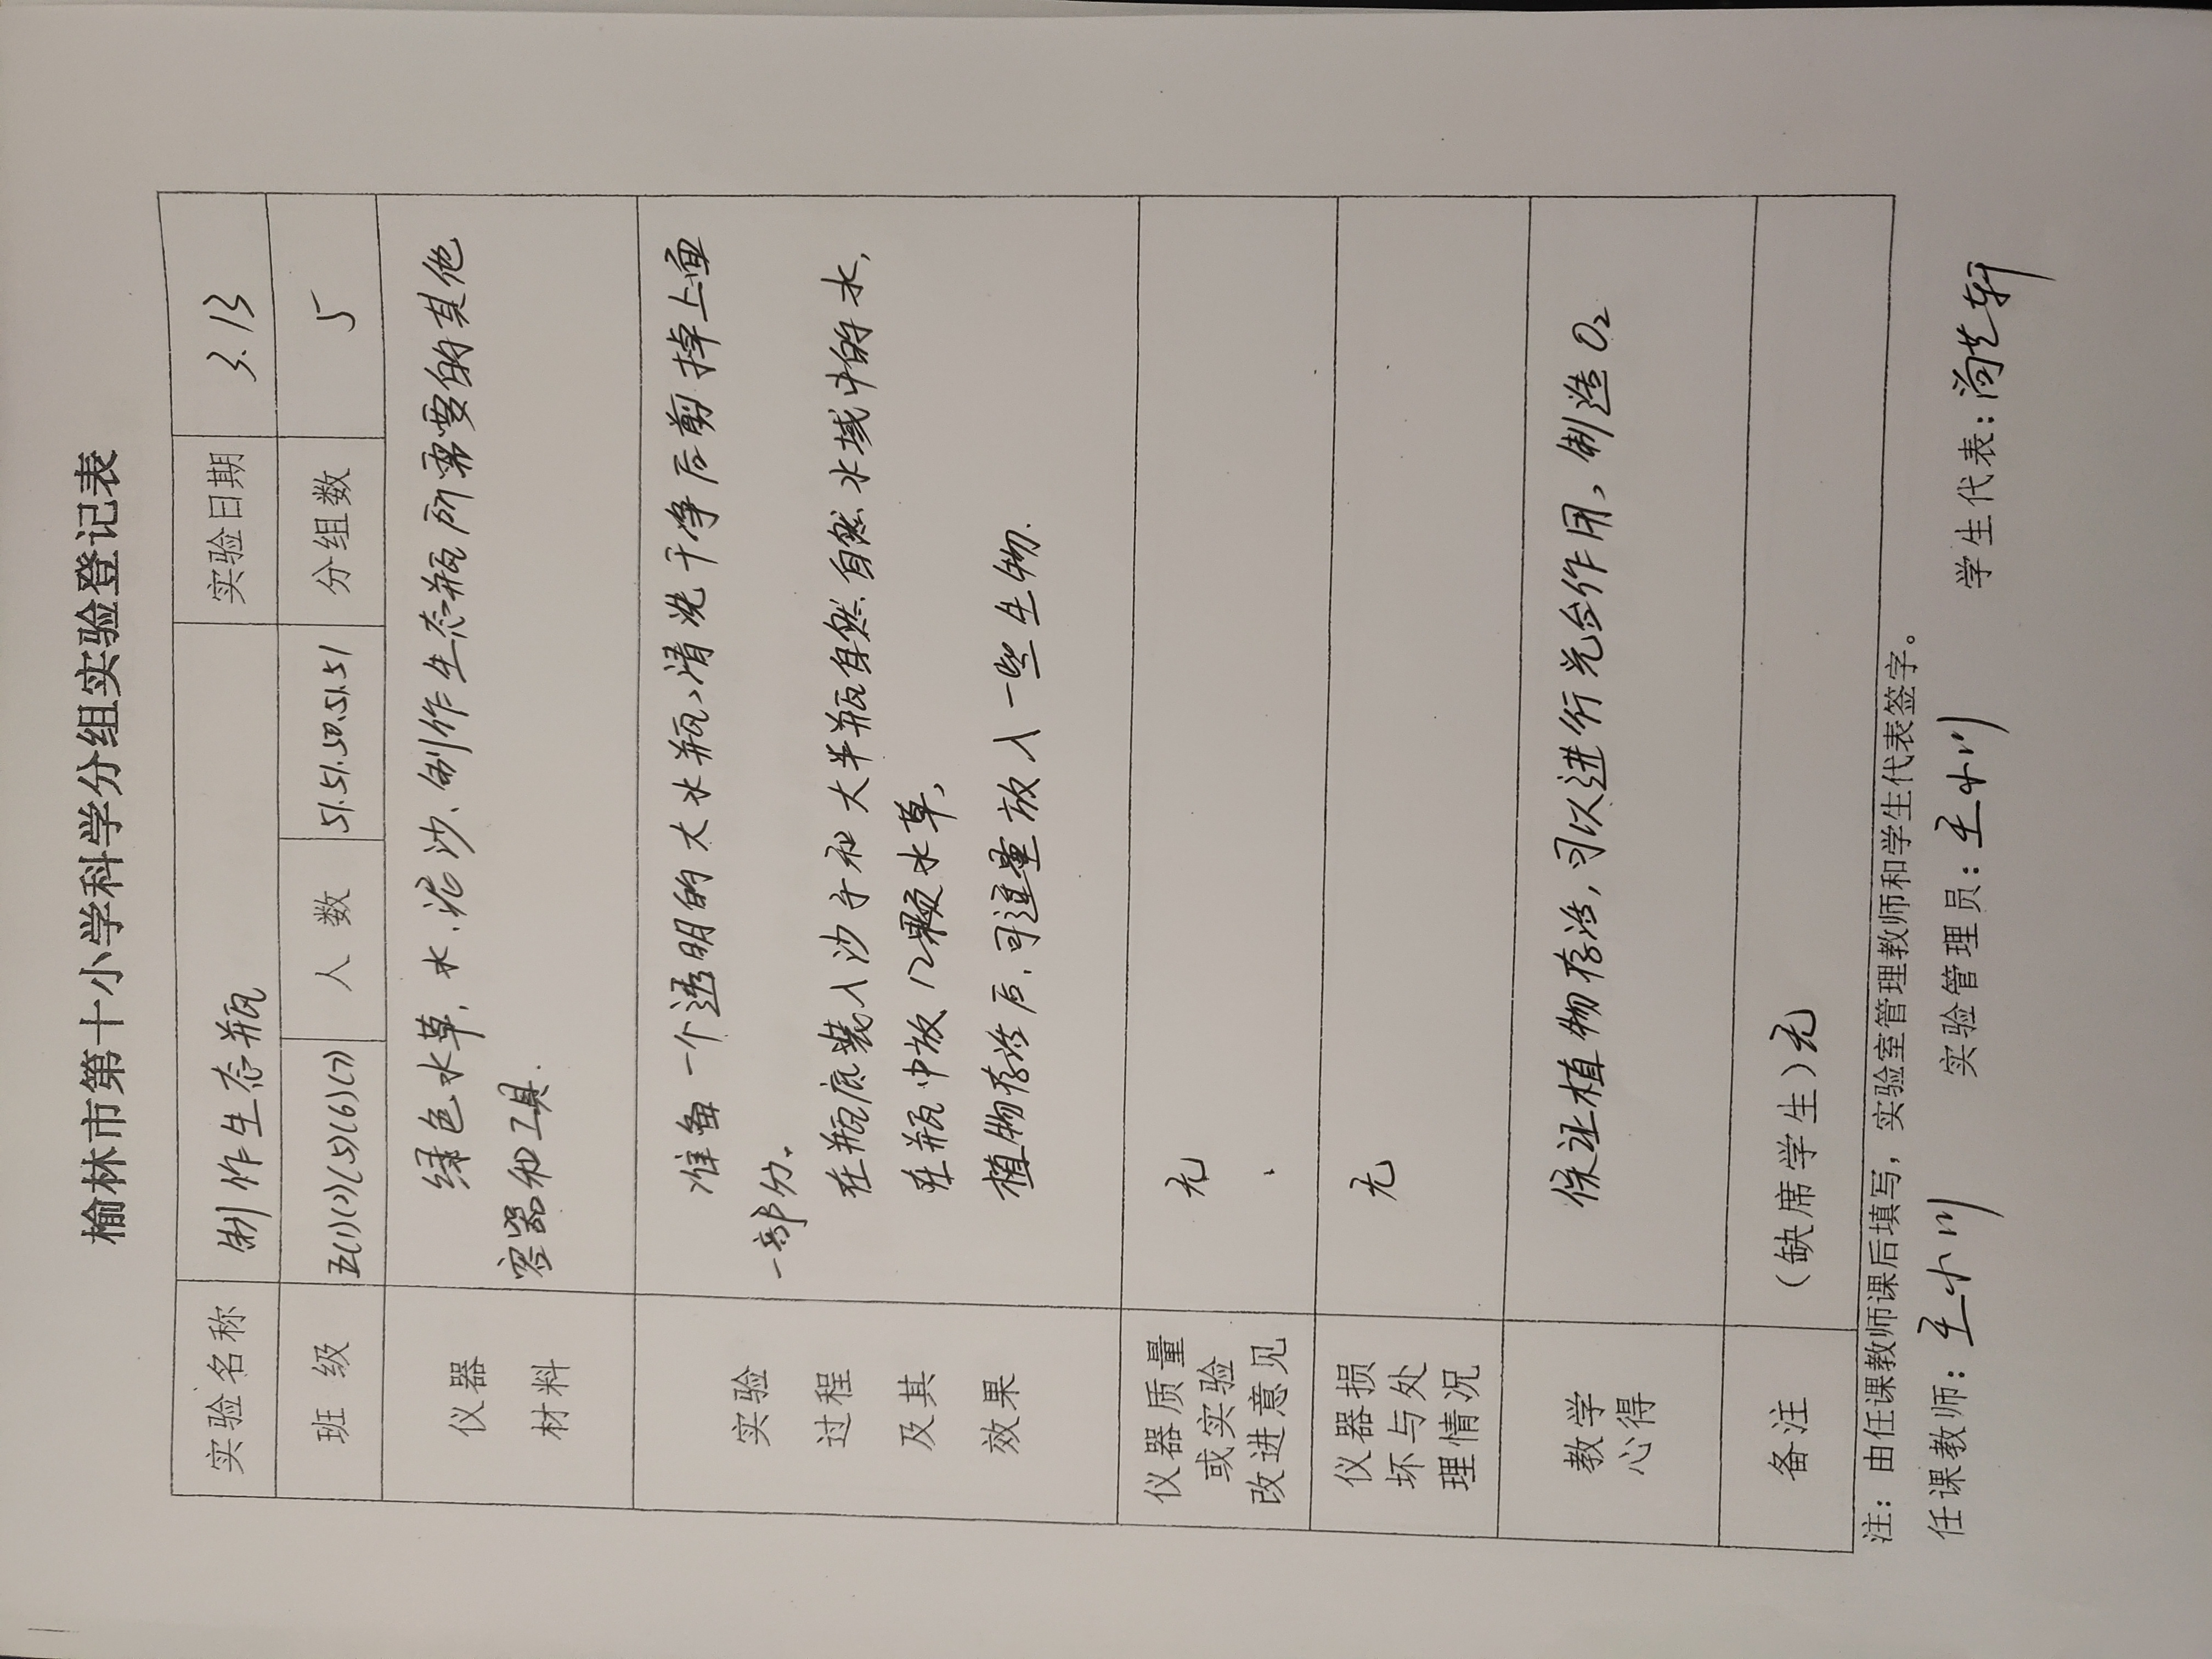 榆林市第十小学科学分组实验登记表
实验名称 制作生态瓶 实验日期 3.13
班级 五(1)(2)(5)(6)(7) 人数 51.51.50.51.51 分组数 5
仪器材料 绿色水草、水、泥沙、制作生态瓶所需要的其他
容器和工具.
实验过程及其效果 准备一个透明的大水瓶,清洗干净后剪掉上面
一部分。
在瓶底装入沙子和大半瓶自然自然水域中的水,
在瓶中放12颗水草,
植物存活后,可适量放入一些生物.
仪器质量或实验改进意见 无
仪器损坏与处理情况 无
教学心得 保证植物存活,可以进行光合作用,制造O₂
备注 (缺席学生)无
注:由任课教师课后填写,实验室管理教师和学生代表签字。
任课教师:王小川 实验管理员:王小川 学生代表: